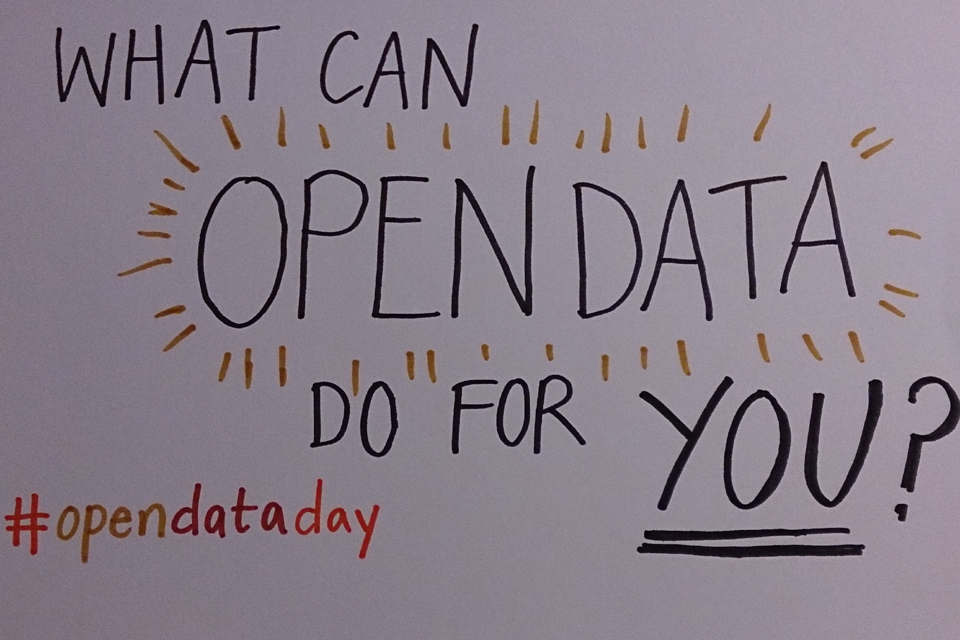 WHAT CAN
OPEN DATA
DO FOR YOU?
#opendataday